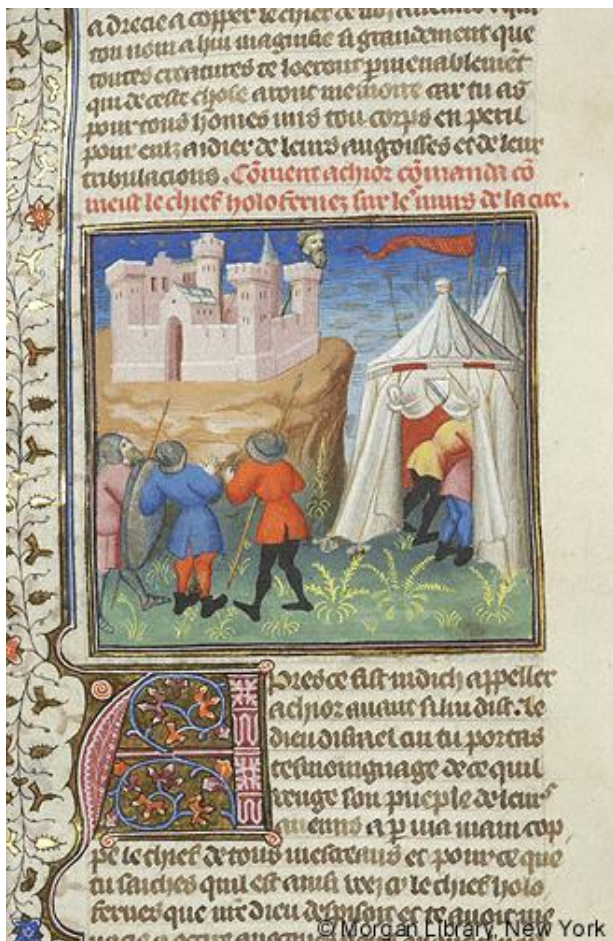 a drecie a copper le chief de
tou nom a hui magnifie si grandement que
toutes creatures te loeront parmenablemēt
qui de ceste chose aront memoire car tu as
pour tous homes mis tou corps en peril
pour eulz aidier de leurs angoisses et de leur
tribulacions. Cōment achior cōmanda cō
ment le chief holofernez sur les murs de la cite.
Apres ce fist iudich appeller
achior auant si lui dist. le
dieu disrael cui tu portas
tesmoingnage de ce quil
venge son pueple de leurs
anemis a par ma main cop
pe le chief de tous mescreans et pour ce que
tu saiches quil est ainsi veez cy le chief holo
fernes que nre dieu desprisoit et te
© Morgan Library, New York